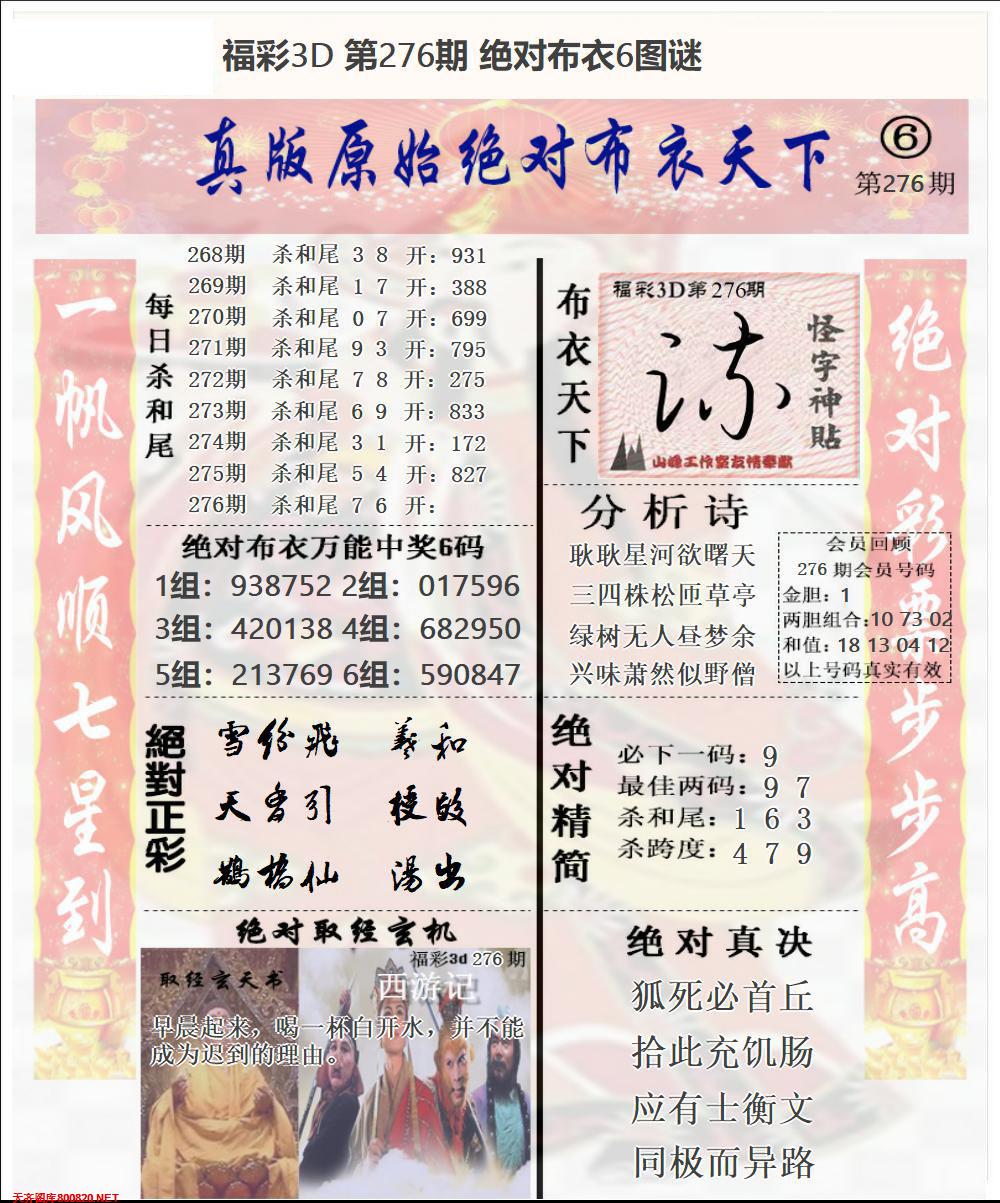 福彩3D 第276期 绝对布衣6图谜
真版原始绝对布衣天下
⑥
第276期
一帆风顺七星到
每日杀和尾
268期 杀和尾 3 8 开：931
269期 杀和尾 1 7 开：388
270期 杀和尾 0 7 开：699
271期 杀和尾 9 3 开：795
272期 杀和尾 7 8 开：275
273期 杀和尾 6 9 开：833
274期 杀和尾 3 1 开：172
275期 杀和尾 5 4 开：827
276期 杀和尾 7 6 开：
绝对布衣万能中奖6码
1组：938752 2组：017596
3组：420138 4组：682950
5组：213769 6组：590847
絕對正彩
雪纷飛 羲和
天香引
鵲橋仙 湯出
绝对取经玄机
福彩3d 276 期
取经玄天书
西游记
早晨起来，喝一杯白开水，并不能
成为迟到的理由。
布衣天下
福彩3D第276期
怪字神貼
山峰工作室友情奉献
分析诗
耿耿星河欲曙天
三四株松匝草亭
绿树无人昼梦余
兴味萧然似野僧
会员回顾
276 期会员号码
金胆：1
两胆组合:10 73 02
和值：18 13 04 12
以上号码真实有效
绝对精简
必下一码：9
最佳两码：9 7
杀和尾：1 6 3
杀跨度：4 7 9
绝对真决
狐死必首丘
拾此充饥肠
应有士衡文
同极而异路
绝对彩票步步高
天齐图库800820.NET